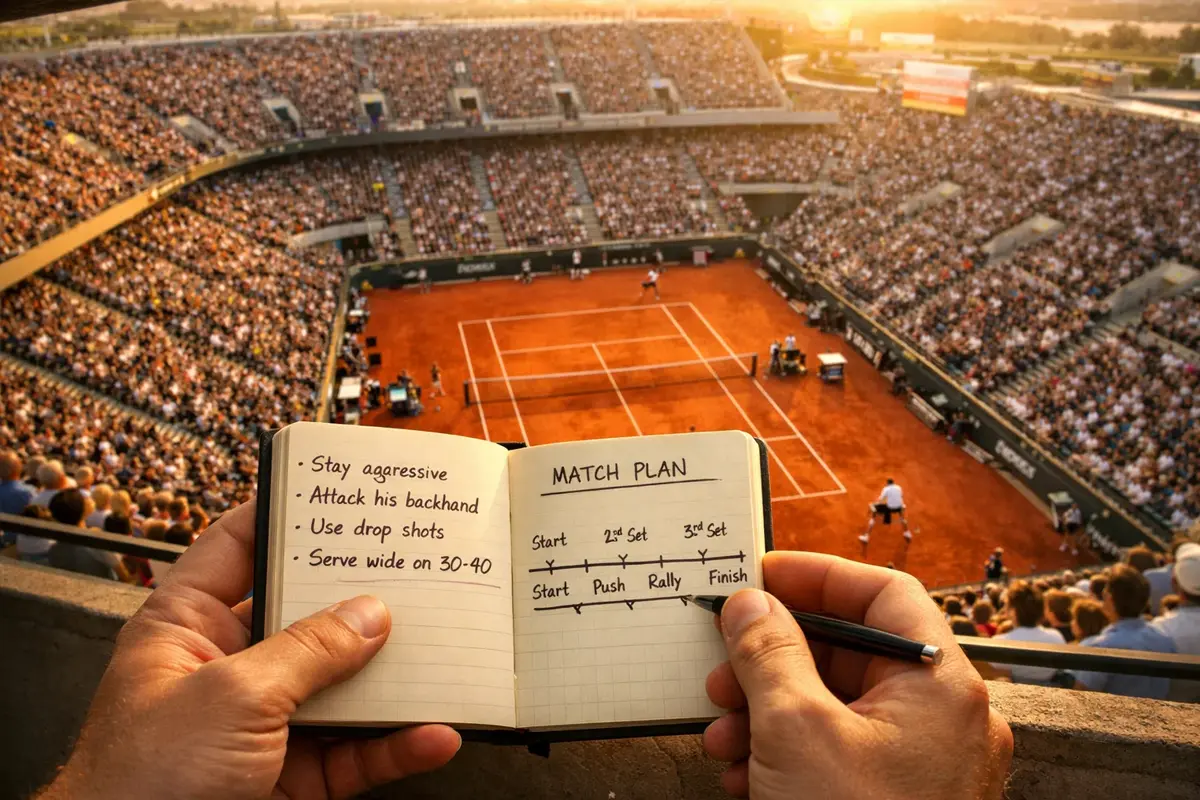 · Stay agaressive
· Attack his backhand
· Use drop shots
· Serve wide on 30-40
MATCH PLAN
Start 2nd Set 3rd Set
Start Push Rally Finish